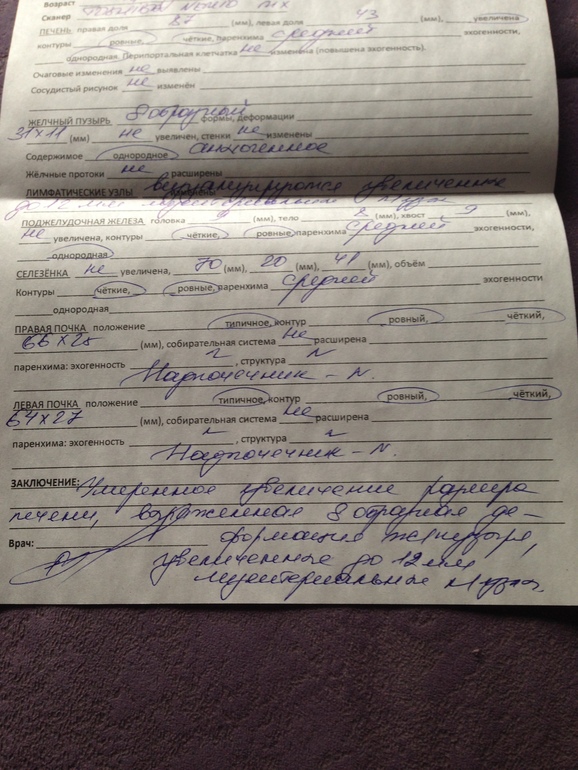 Возраст
Сканер
ПЕЧЕНЬ правая доля 87 (мм), левая доля 43 (мм), увеличена,
контуры ровные, чёткие, паренхима средней эхогенности,
однородная. Перипортальная клетчатка не изменена (повышена эхогенность).
Очаговые изменения не выявлены
Сосудистый рисунок не изменён
ЖЕЛЧНЫЙ ПУЗЫРЬ 8 образный формы, деформации
31х11 (мм) не увеличен, стенки не изменены
Содержимое однородное анэхогенное
Жёлчные протоки не расширены
ЛИМФАТИЧЕСКИЕ УЗЛЫ визуализируются увеличенные
до 12 мм
ПОДЖЕЛУДОЧНАЯ ЖЕЛЕЗА головка 9 (мм), тело 8 (мм), хвост 9 (мм),
не увеличена, контуры чёткие, ровные, паренхима средней эхогенности,
однородная
СЕЛЕЗЁНКА не увеличена, 70 (мм), 20 (мм), 41 (мм), объём
Контуры чёткие, ровные, паренхима средней эхогенности
однородная
ПРАВАЯ ПОЧКА положение типичное, контур ровный, чёткий,
66х25 (мм), собирательная система не расширена
паренхима: эхогенность N, структура N
Надпочечник - N.
ЛЕВАЯ ПОЧКА положение типичное, контур ровный, чёткий,
64х27 (мм), собирательная система не расширена
паренхима: эхогенность N, структура N
Надпочечник - N.
ЗАКЛЮЧЕНИЕ: Умеренное увеличение размера
печени, выраженная 8 образная де-
Врач: формация ж. пузыря,
увеличенные до 12 мм
мезентериальные л/узлы.